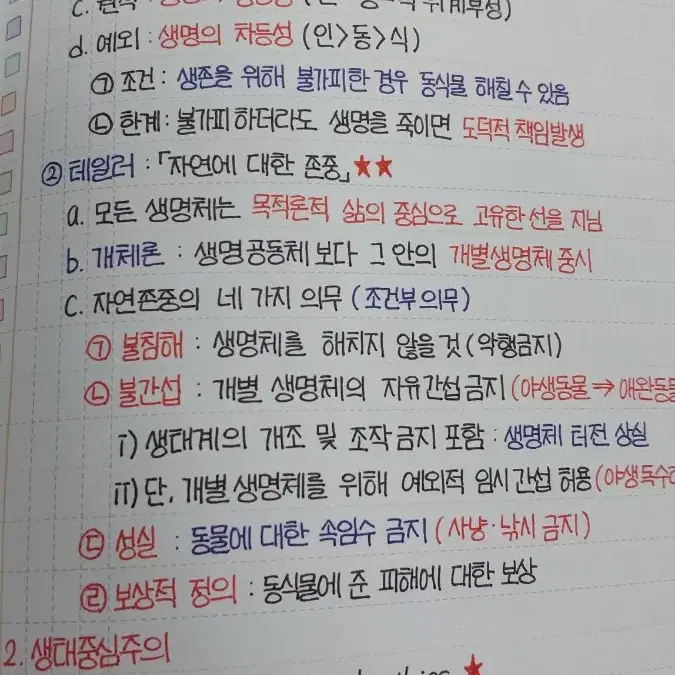 c. 원칙 :
d. 예외 : 생명의 차등성 (인>동>식)
㉠ 조건 : 생존을 위해 불가피한 경우 동식물 해칠 수 있음
㉡ 한계 : 불가피하더라도 생명을 죽이면 도덕적 책임발생
② 테일러 : 「자연에 대한 존중」★★
a. 모든 생명체는 목적론적 삶의 중심으로 고유한 선을 지님
b. 개체론 : 생명 공동체 보다 그 안의 개별생명체 중시
c. 자연존중의 네 가지 의무 (조건부 의무)
㉠ 불침해 : 생명체를 해치지 않을 것 (악행금지)
㉡ 불간섭 : 개별 생명체의 자유간섭 금지 (야생동물 → 애완동물
ⅰ) 생태계의 개조 및 조작금지 포함 : 생명체 터전 상실
ⅱ) 단, 개별생명체를 위해 예외적 임시간섭 허용 (야생독수리
㉢ 성실 : 동물에 대한 속임수 금지 (사냥·낚시 금지)
㉣ 보상적 정의 : 동식물에 준 피해에 대한 보상
2. 생태중심주의
★